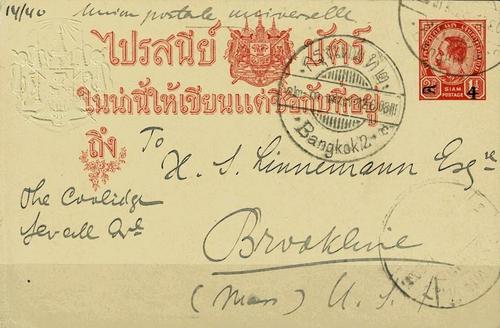 14/40 Union postale universelle
ไปรสนีย์ บัตร์
ในน่านี้ให้เขียนแต่
ถึง
SIAM
POSTAGE
4
Bangkok 2
To
H. S. Linnemann Esqre
The Coolidge
Sevall Ave
Brookline
(Mass) U. S. A